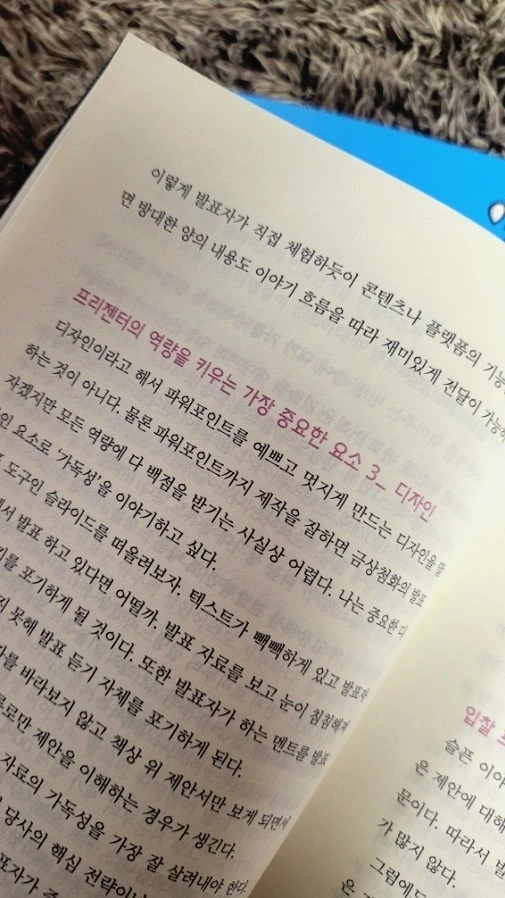 이렇게 발표자가 직접 체험하듯이 콘텐츠나 플랫폼의 기능
면 방대한 양의 내용도 이야기 흐름을 따라 재미있게 전달이 가능하
프리젠터의 역량을 키우는 가장 중요한 요소 3_ 디자인
디자인이라고 해서 파워포인트를 예쁘고 멋지게 만드는 디자인을 말
하는 것이 아니다. 물론 파워포인트까지 제작을 잘하면 금상첨화의 발표
자겠지만 모든 역량에 다 백점을 받기는 사실상 어렵다. 나는 중요한 디
인 요소로 '가독성'을 이야기하고 싶다.
도구인 슬라이드를 떠올려보자. 텍스트가 빽빽하게 있고 발표자
서 발표 하고 있다면 어떨까. 발표 자료를 보고 눈이 침침해져
기를 포기하게 될 것이다. 또한 발표자가 하는 멘트를 발표
못해 발표 듣기 자체를 포기하게 된다.
를 바라보지 않고 책상 위 제안서만 보게 되면서
로만 제안을 이해하는 경우가 생긴다.
자료의 가독성을 가장 잘 살려내야 한다.
당사의 핵심 전략이나
표자가
입찰
슬픈 이야
은 제안에 대해
문이다. 따라서 발
가 많지 않다.
그럼에도
은